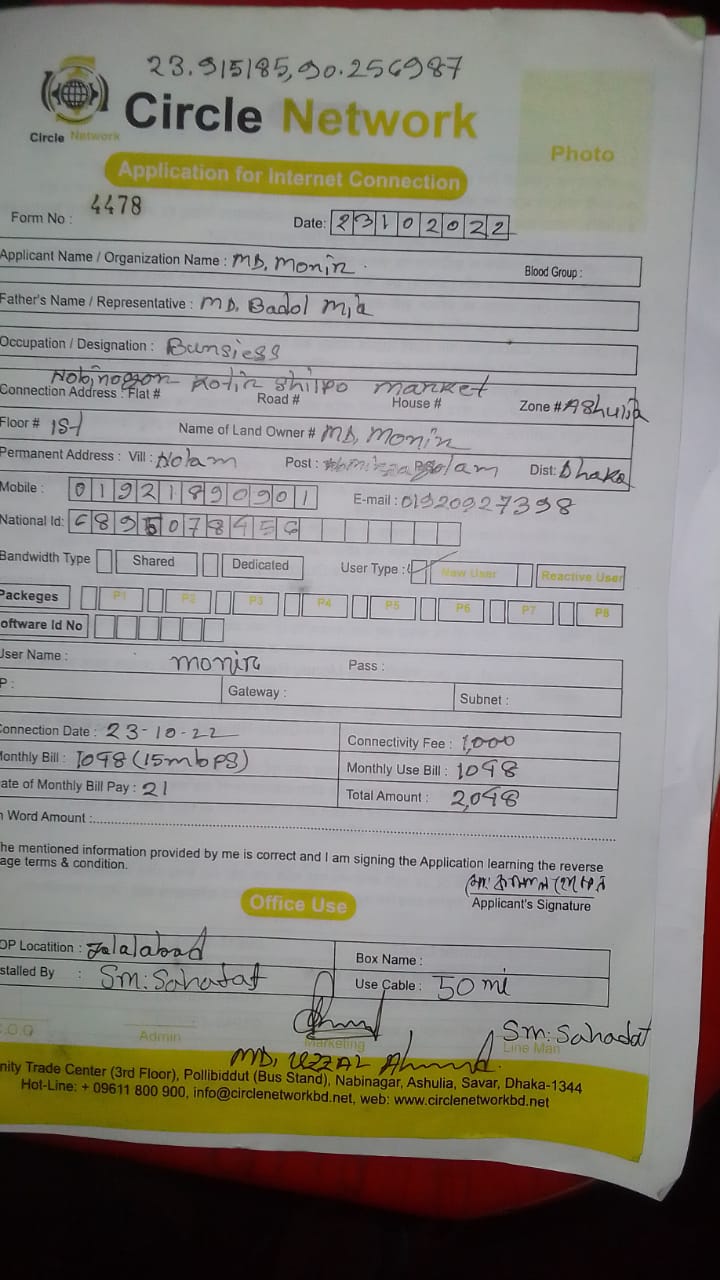 23.915185,90.256987
Circle Network
Circle Network
Photo
Application for Internet Connection
Form No : 4478
Date: 23102022
Applicant Name / Organization Name : MD. Monir.
Blood Group :
Father's Name / Representative : MD. Badol Mia
Occupation / Designation : Bunsiess
Nobinogon Kotir Shilpo Market
Connection Address : Flat # Road # House # Zone # Ashulia
Floor # 1st Name of Land Owner # MD, Monir
Permanent Address : Vill : Nolam Post : Dist: Dhaka
Mobile : 01921890901 E-mail : 01920927398
National Id:
Bandwidth Type Shared Dedicated User Type : New User Reactive User
Packeges P1 P2 P3 P4 P5 P6 P7 P8
oftware Id No
User Name : monir Pass :
P : Gateway : Subnet :
Connection Date : 23-10-22 Connectivity Fee : 1,000
Monthly Bill : 1098 (15mbps) Monthly Use Bill : 1098
ate of Monthly Bill Pay : 21 Total Amount : 2,098
n Word Amount :
he mentioned information provided by me is correct and I am signing the Application learning the reverse
age terms & condition.
Applicant's Signature
Office Use
OP Locatition : Jalalabad Box Name :
stalled By : SM: Sahadat Use Cable : 50 mi
C.O.O Admin Marketing Line Man
SM: Sahadat
MD, UZZAL Ahmed.
nity Trade Center (3rd Floor), Pollibiddut (Bus Stand), Nabinagar, Ashulia, Savar, Dhaka-1344
Hot-Line: + 09611 800 900, info@circlenetworkbd.net, web: www.circlenetworkbd.net